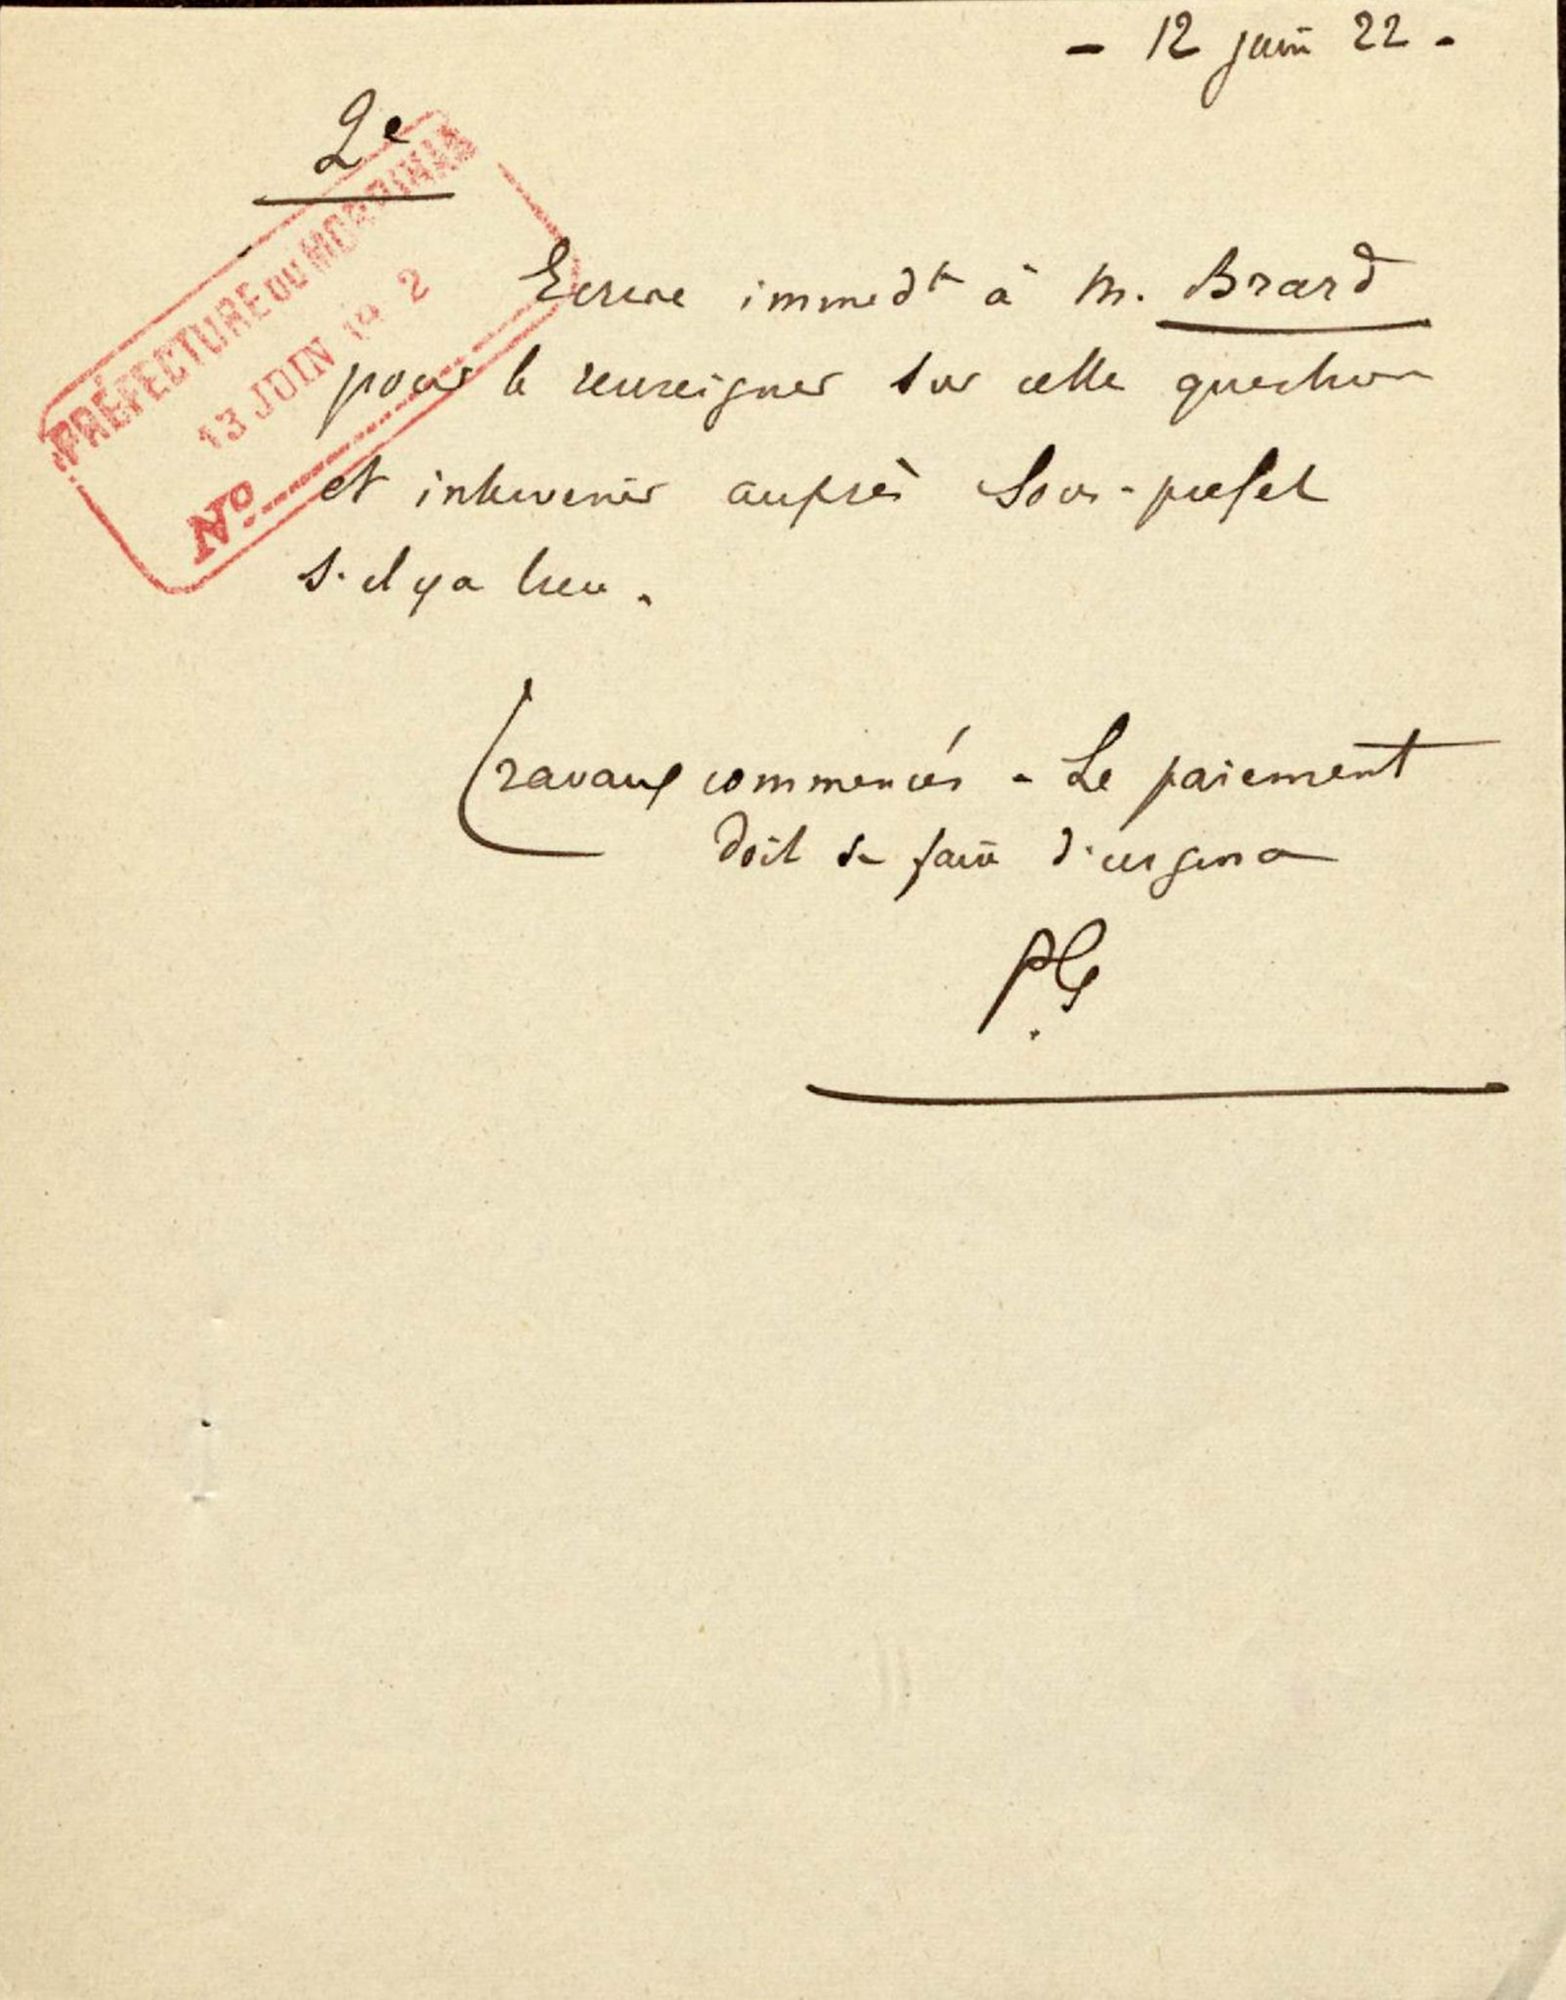 - 12 juin 22 -
2e
PRÉFECTURE DU MORBIHAN
13 JUIN 19 2
No
Ecrire immedt à M. Brard
pour le renseigner sur cette question
et intervenir auprès Sous-préfet
s'il y a lieu.
Travaux commencés - Le paiement
doit se faire d'urgence
PG